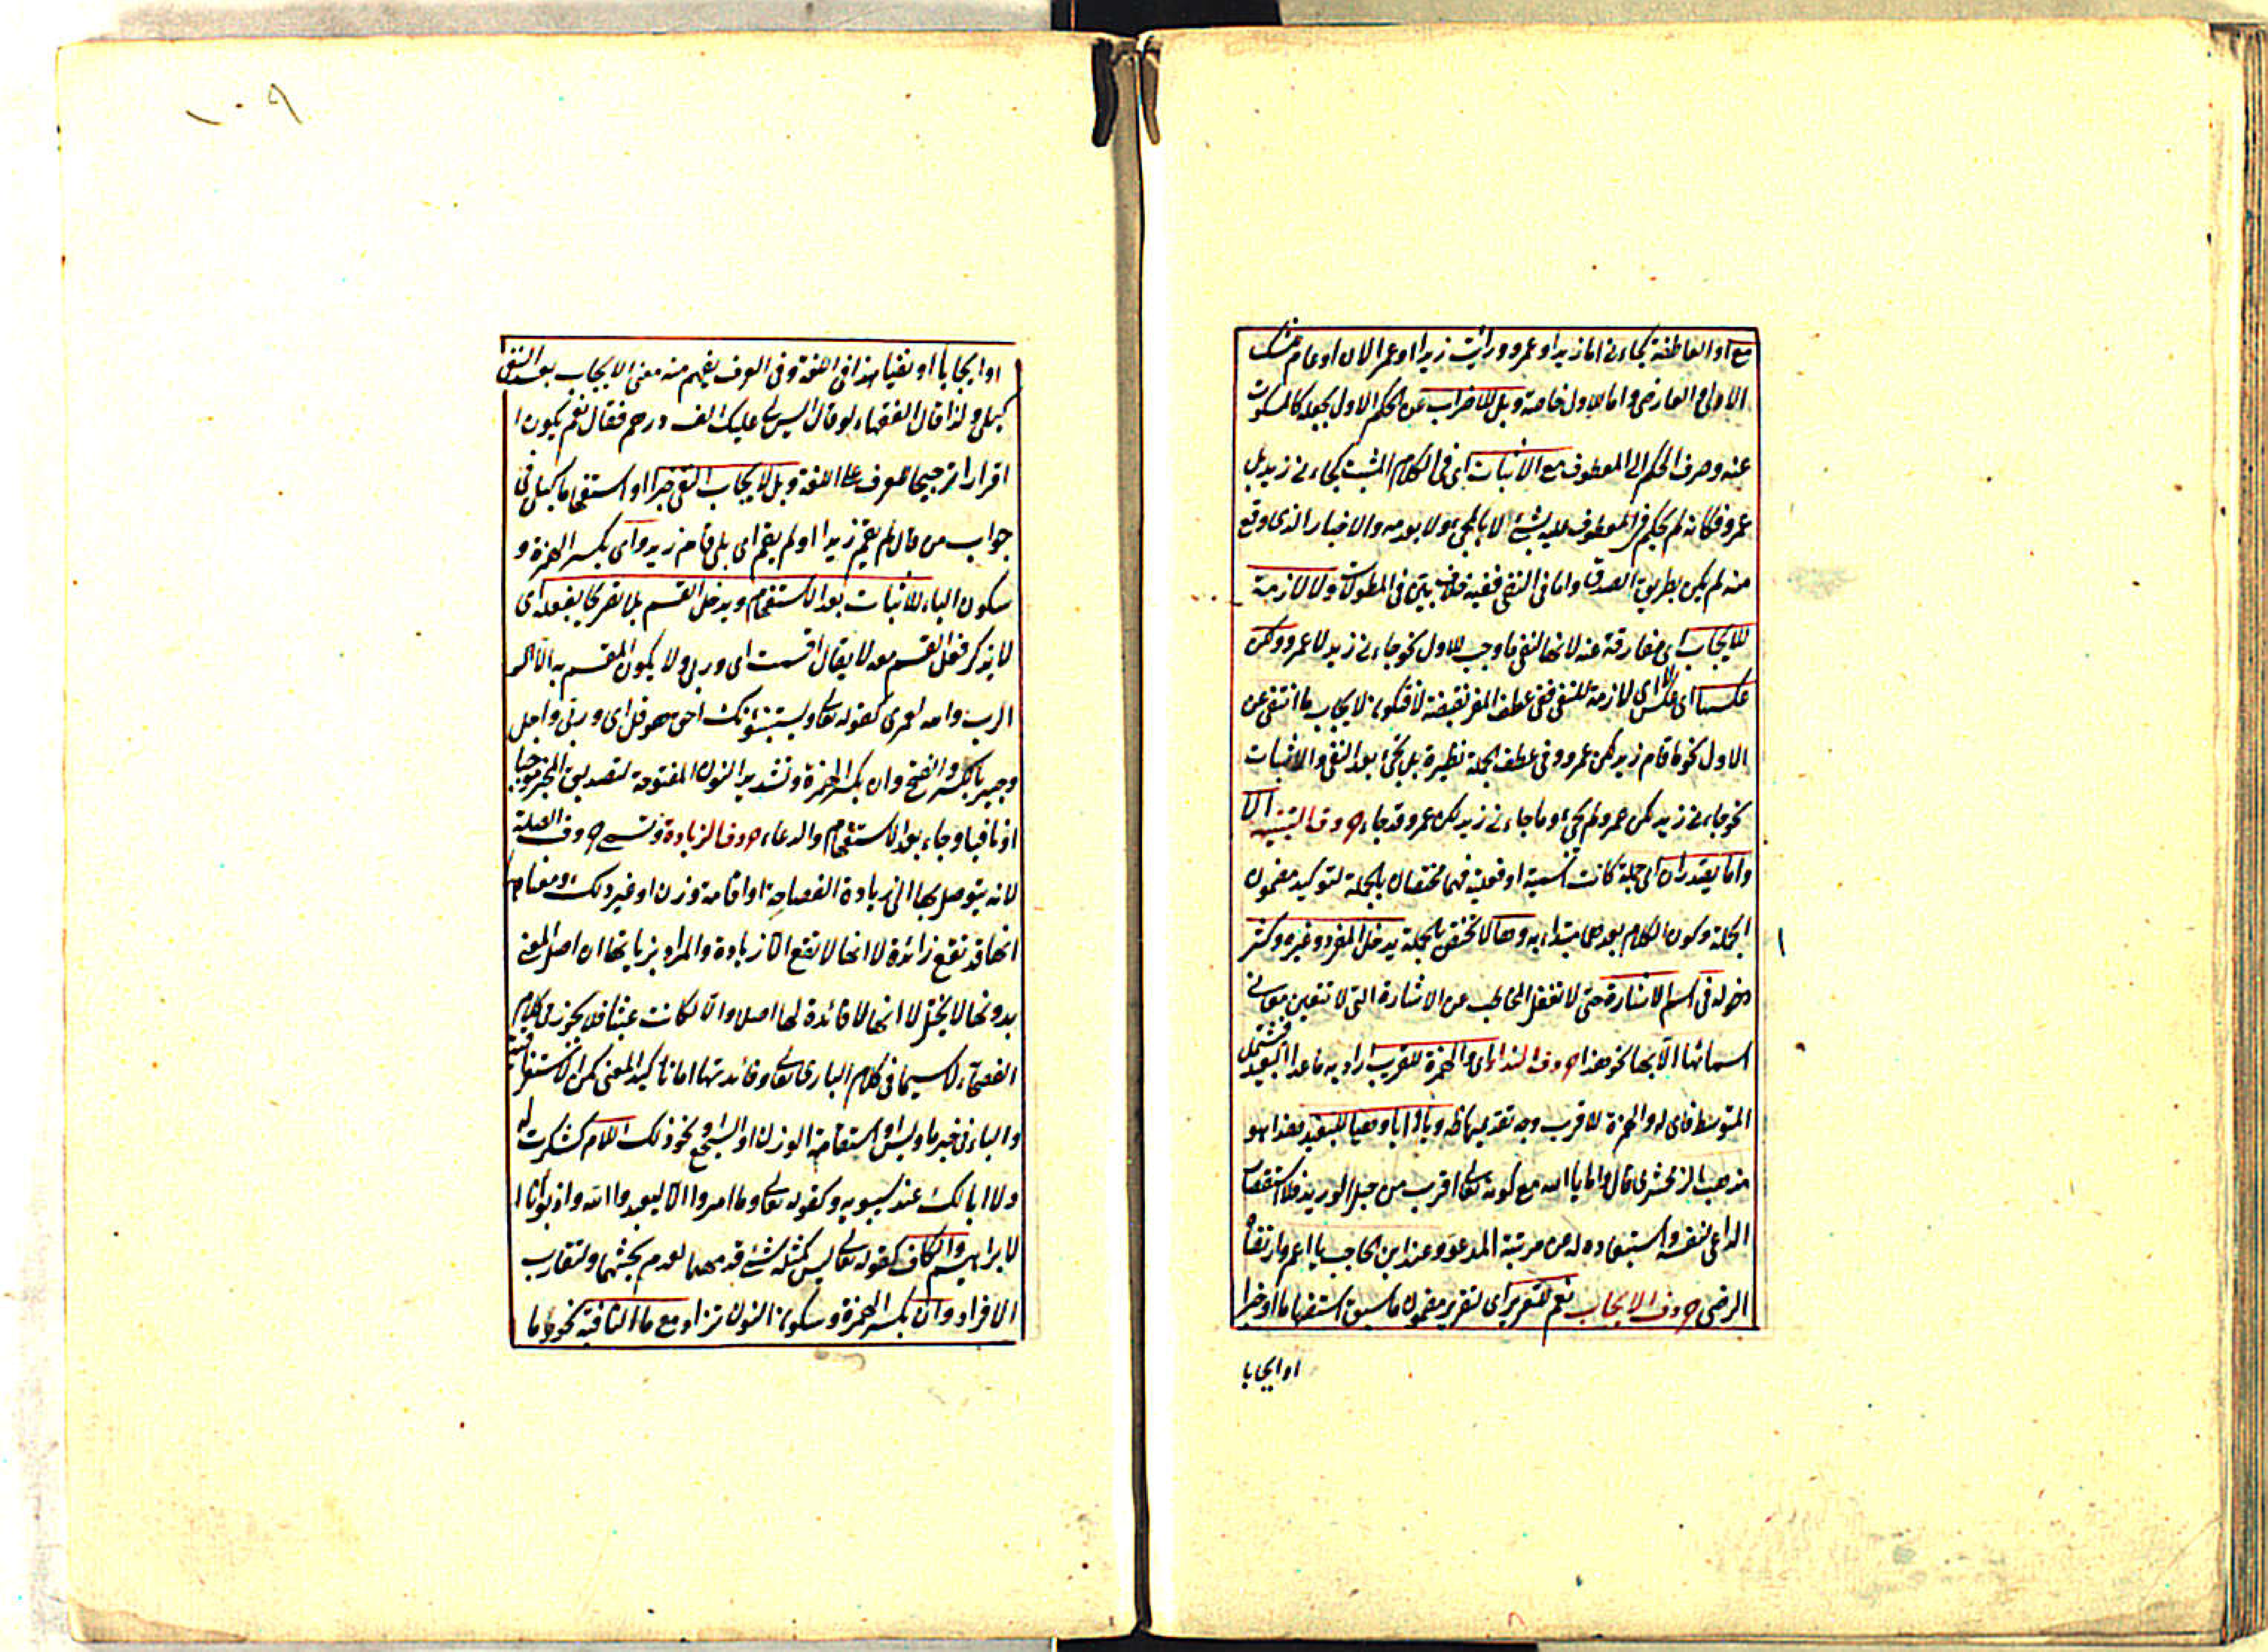 مع او العاطفة كجاءنى اما زيد او عمرو ورأيت زيدا او عمرا الا ان او عام
الاول و العارضى واما للاول خاصة وبل للاضراب عن الحكم الاول بجعله كالمسكوت
عنه وصرف الحكم الى المعطوف مع الاثبات اى فى الكلام المثبت كجاءنى زيد بل
عمرو فكانه لم يحكم فى المعطوف عليه بشئ لا بالمجئ ولا بعدمه والاخبار الذى وقع
منه لم يكن بطريق الصدق واما فى النفى ففيه خلاف بين فى المطولات ولا لازمة
للايجاب اى مفارقة عنه لانها لنفى ما وجب للاول نحو جاءنى زيد لا عمرو ولكن
عكسها اى عكس لا اى لازمة للنفى ففى عطف المفرد نقيضة لا فتكون لايجاب ما انتفى عن
الاول نحو ما قام زيد لكن عمرو وفى عطف الجملة نظيرة بل تجئ بعد النفى والاثبات
نحو جاءنى زيد لكن عمرو لم يجئ وما جاءنى زيد لكن عمرو قد جاء حروف التنبيه الا
واما يصدران اى جملة كانت اسمية او فعلية فهما مختصان بالجملة لتوكيد مضمون
الجملة وكون الكلام بعدهما مبتداء به وها لا تختص بالجملة يدخل المفرد وغيره وكثر
دخوله فى اسم الاشارة حتى لا تغفل المخاطب عن الاشارة التى لا تتعين معانى
اسمائها الا بها نحو هذا حروف النداء اى والهمزة للقريب اراد به ما عدا البعيد فيشتمل
المتوسط فاى له والهمزة للاقرب وجه تقديمها ظ ويا و ايا وهيا للبعيد هذا هو
مذهب الزمخشرى قال واما يا الله مع كونه تعالى اقرب من حبل الوريد فلاستقصار
الداعى نفسه واستبعاده له من مرتبة المدعو وعند ابن الحاجب يا اعم وارتضاه
الرضى حروف الايجاب نعم للتقرير اى لتقرير مضمون ما سبق استفهاما او خبرا
او ايجابا
١٠٩
او ايجابا او نفيا هذا فى اللغة وفى العرف يفهم منه معنى الايجاب بعد النفى
كبلى ولذا قال الفقهاء لو قال اليس لى عليك الف درهم فقال نعم يكون
اقرارا ترجيحا للعرف على اللغة وبلى لايجاب النفى خبرا او استفهاما كبلى فى
جواب من قال لم يقم زيد او لم يقم اى بلى قام زيد واى بكسر الهمزة و
سكون الياء للاثبات بعد الاستفهام ويدخل القسم بلا تصريح بفعله اى
لا يذكر فعل القسم معه لا يقال اقسمت اى وربى ولا يكون المقسم به الا
الرب والله لعمرى كقوله تعالى ويستنبئونك احق هو قل اى وربى واجل
وجير بالكسر والفتح وان بكسر الهمزة وتشديد النون المفتوحة لتصديق المخبر موجبا
او نافيا وجاء بعد الاستفهام والدعاء حروف الزيادة وتسمى حروف الصلة
لانه يتوصل بها الى زيادة الفصاحة او اقامة وزن او غير ذلك ومعناه
انها قد تقع زائدة لا انها لا تقع الا زيادة والمراد بزيادتها ان اصل المعنى
بدونها لا يختل لا انها لا فائدة لها اصلا والا لكانت عبثا فلا يجوز فى كلام
الفصحاء لا سيما فى كلام البارى تعالى وفائدتها اما تاكيد المعنى كمن الاستغراقية
والباء فى خبر ما وليس او استقامة الوزن او السجع ونحو ذلك اللام كشكرت له
ولا ابا لك عند سيبويه وكقوله تعالى وما امروا الا ليعبدوا الله واذ بوأنا
لابراهيم والكاف كقوله تعالى ليس كمثله شئ قدمهما لعدم بحثهما ولتقارب
الافراد وان بكسر الهمزة وسكون النون تزاد مع ما النافية نحو ما